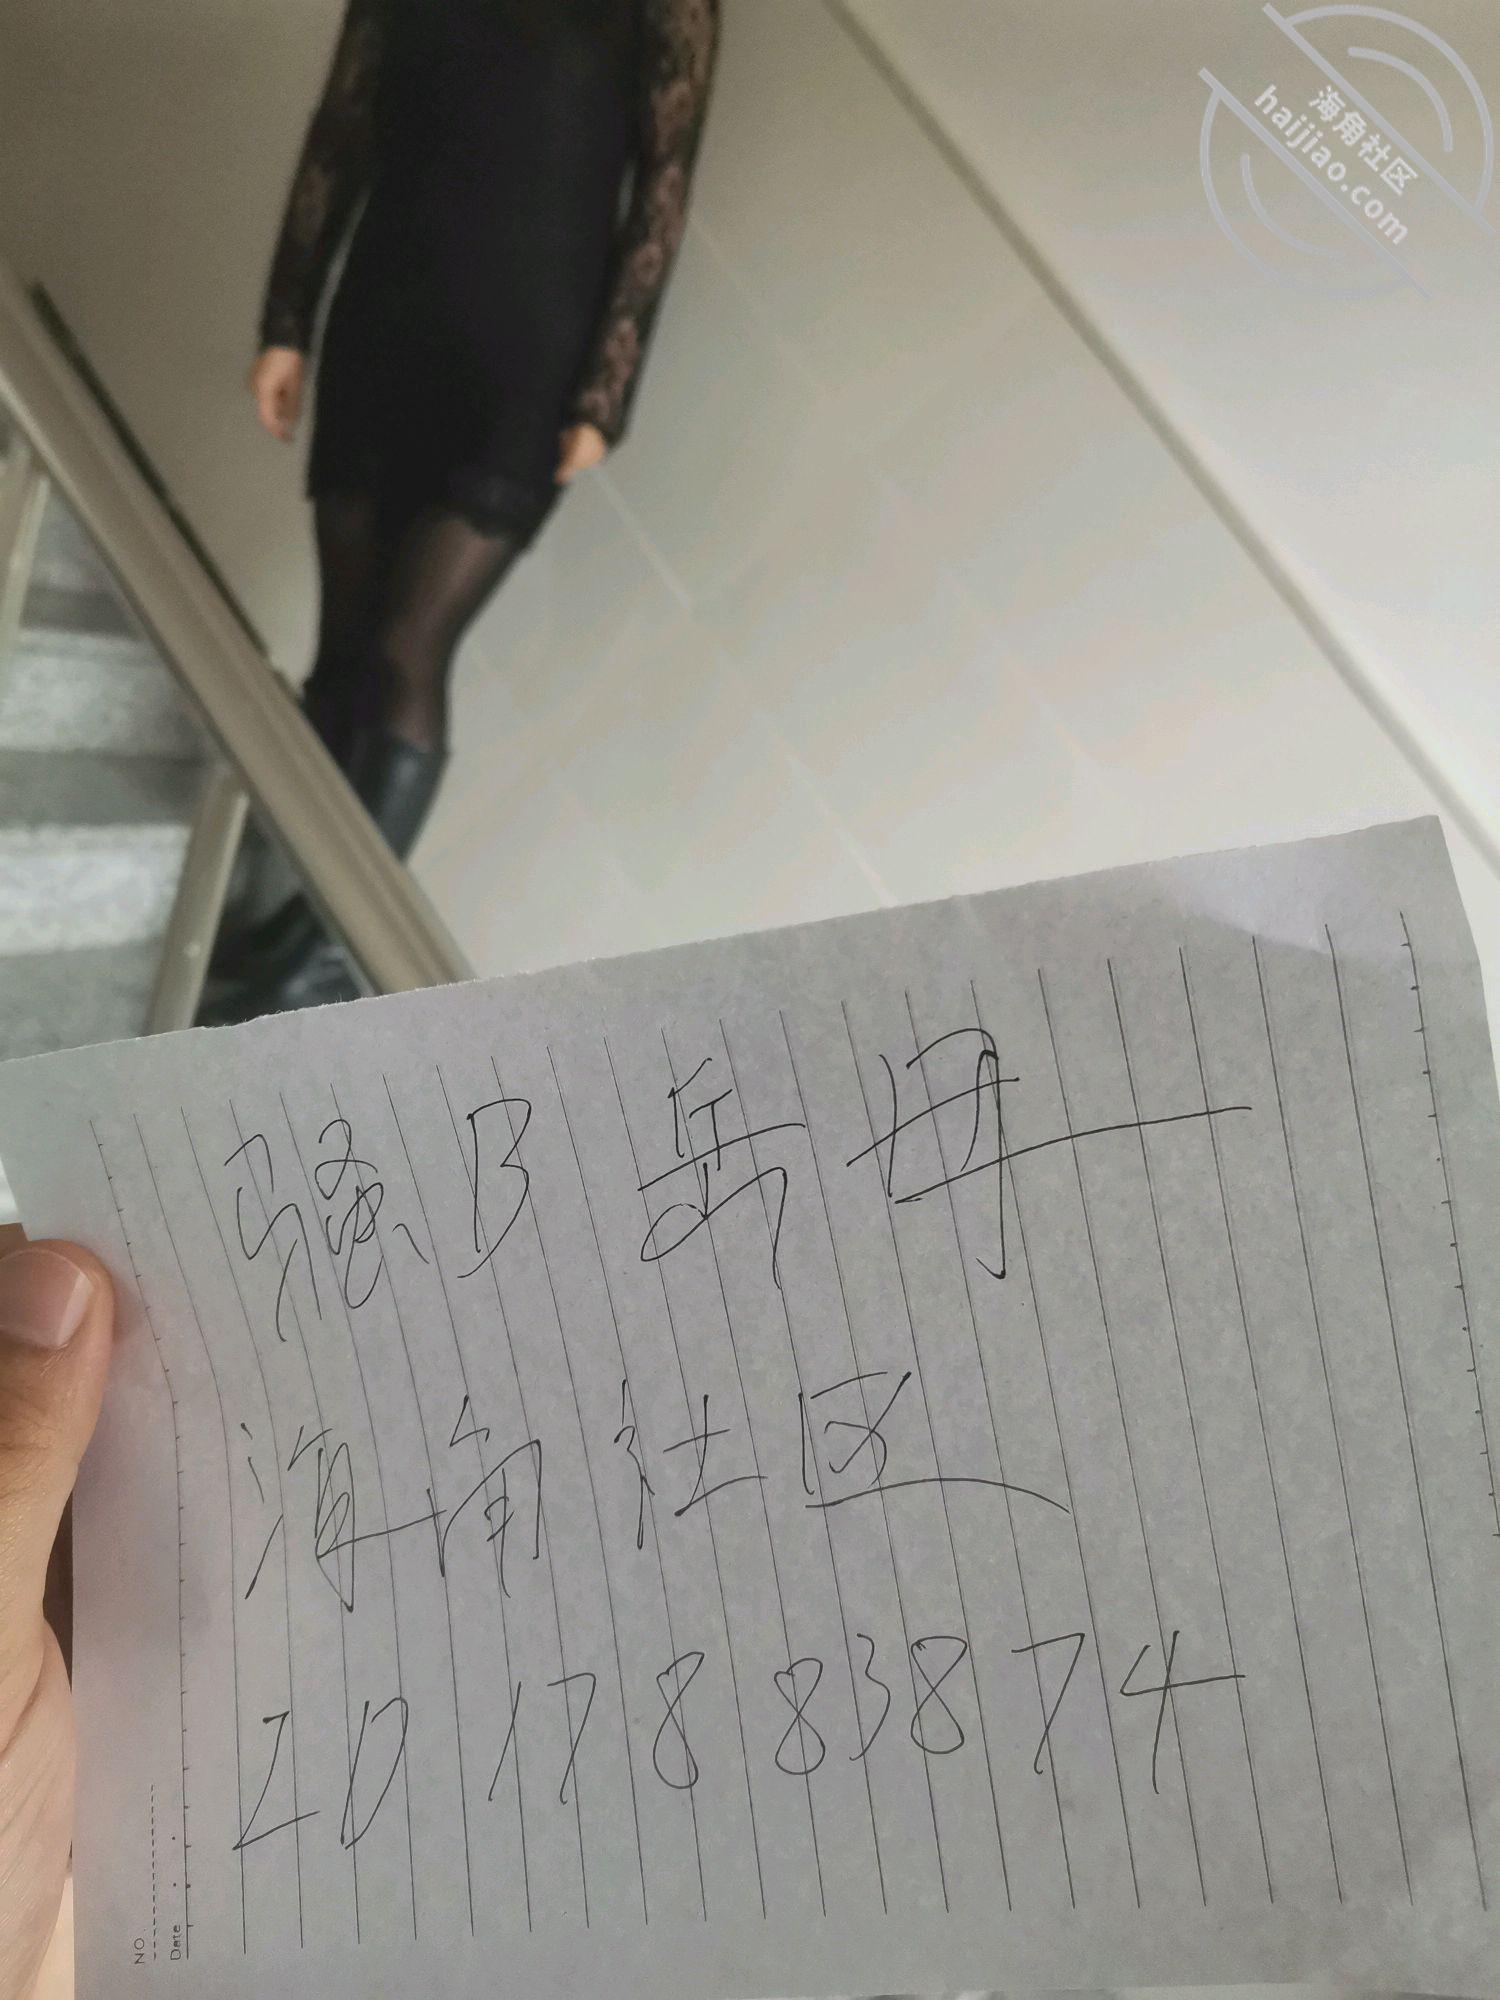 海角社区
haijiao.com
骚B岳母
海角社区
ID 17883874
NO.
Date